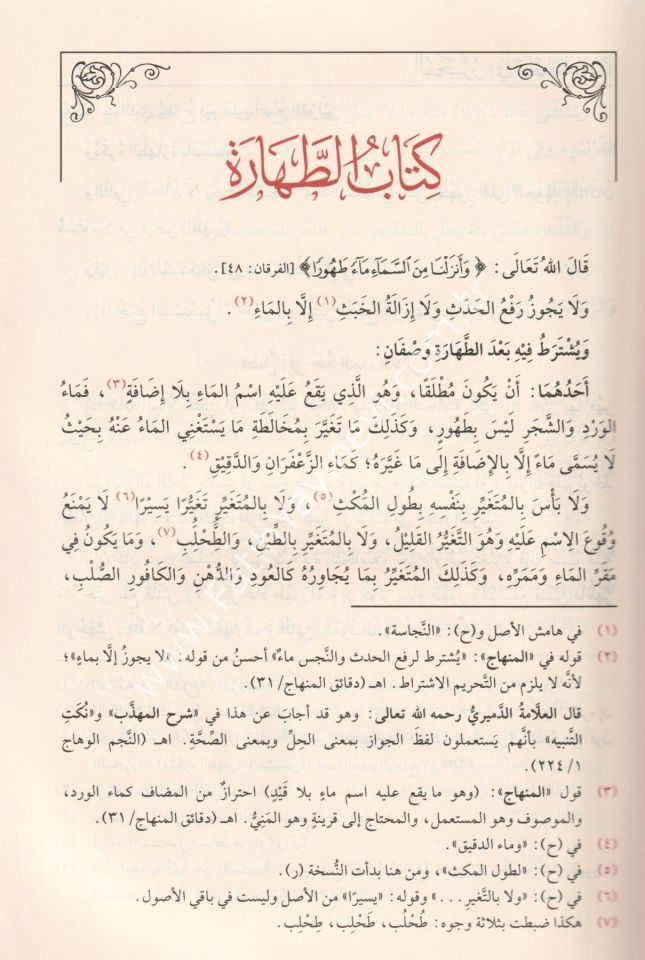 كِتَابُ الطَّهَارَةِ
قَالَ اللهُ تَعَالَى: ﴿ وَأَنزَلْنَا مِنَ ٱلسَّمَآءِ مَآءً طَهُورًا﴾ [الفرقان: ٤٨].
وَلَا يَجُوزُ رَفْعُ الحَدَثِ وَلَا إِزَالَةُ الخَبَثِ(١) إِلَّا بِالمَاءِ(٢).
وَيُشْتَرَطُ فِيْهِ بَعْدَ الطَّهَارَةِ وصْفَانِ:
أَحَدُهُمَا: أَنْ يَكُونَ مُطْلَقًا، وَهُوَ الَّذِي يَقَعُ عَلَيْهِ اسْمُ المَاءِ بِلَا إِضَافَةٍ(٣)، فَمَاءُ
الوَرْدِ وَالشَّجَرِ لَيْسَ بِطَهُورٍ، وَكَذَلِكَ مَا تَغَيَّرَ بِمُخَالَطَةِ مَا يَسْتَغْنِي المَاءُ عَنْهُ بِحَيْثُ
لَا يُسَمَّى مَاءً إِلَّا بِالإِضَافَةِ إِلَى مَا غَيَّرَهُ؛ كَمَاءِ الزَّعْفَرَانِ وَالدَّقِيْقِ(٤).
وَلَا بَأْسَ بِالمُتَغَيِّرِ بِنَفْسِهِ بِطُولِ المُكْثِ(٥)، وَلَا بِالمُتَغَيِّرِ تَغَيُّرًا يَسِيْرًا(٦) لَا يَمْنَعُ
وُقُوعَ الِاسْمِ عَلَيْهِ وَهُوَ التَّغَيُّرُ القَلِيْلُ، وَلَا بِالمُتَغَيِّرِ بِالطِّيْنِ، وَالطُّحْلُبِ(٧)، وَمَا يَكُونُ فِي
مَقَرِّ المَاءِ وَمَمَرِّهِ، وَكَذَلِكَ المُتَغَيِّرُ بِمَا يُجَاوِرُهُ كَالعُودِ وَالدُّهْنِ وَالكَافُورِ الصُّلْبِ،
(١) في هامش الأصل و(ح): «النَّجاسة».
(٢) قوله في «المنهاج»: «يُشترط لرفع الحدث والنَّجس ماءٌ» أحسنُ من قوله: «لا يجوزُ إلَّا بماءٍ»؛
لأنَّه لا يلزم من التَّحريم الاشتراط. اهـ (دقائق المنهاج/ ٣١).
قال العلَّامة الدَّميريُّ رحمه الله تعالى: وهو قد أجابَ عن هذا في «شرح المهذَّب» و«نُكَتِ
التَّنبيه» بأنَّهم يَستعملون لفظَ الجواز بمعنى الحِلِّ وبمعنى الصِّحَّة. اهـ (النَّجم الوهاج
١/ ٢٢٤).
(٣) قول «المنهاج»: (وهو ما يقع عليه اسم ماءٍ بلا قَيْدٍ) احترازٌ من المضاف كماء الورد،
والموصوف وهو المستعمل، والمحتاج إلى قرينةٍ وهو المَنِيُّ. اهـ (دقائق المنهاج/ ٣١).
(٤) في (ح): «وماء الدقيق».
(٥) في (ح): «لطول المكث»، ومن هنا بدأت النُّسخة (ر).
(٦) في (ح): «ولا بالتَّغير ...» وقوله: «يسيرًا» من الأصل وليست في باقي الأصول.
(٧) هكذا ضبطت بثلاثة وجوه: طُحْلُب، طَحْلِب، طِحْلِب.